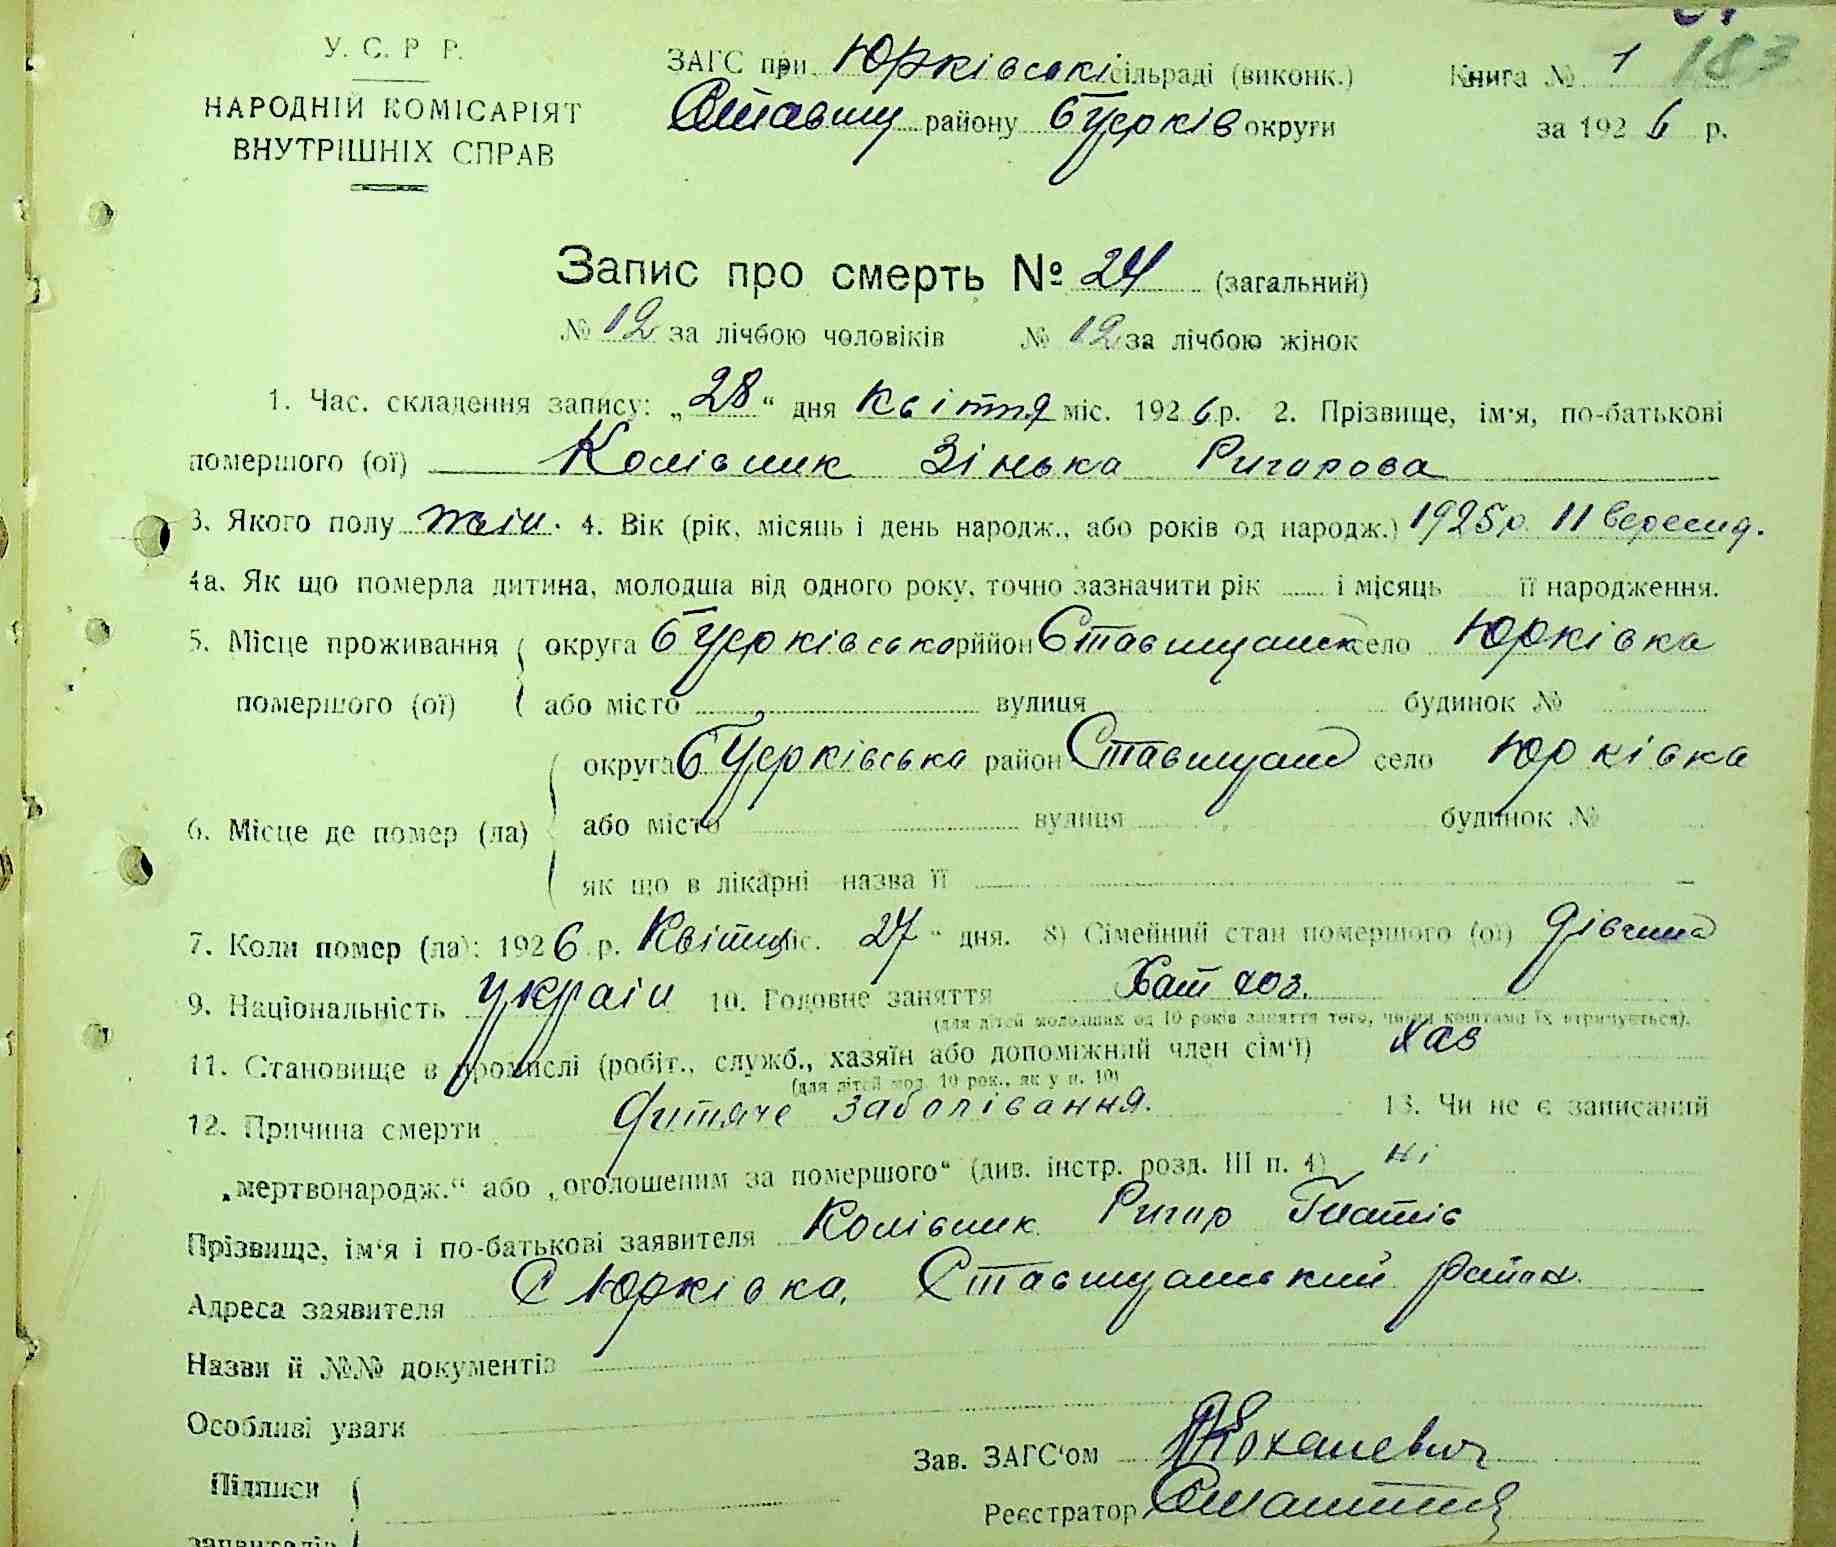 У. С. Р Р.
НАРОДНІЙ КОМІСАРІЯТ
ВНУТРІШНІХ СПРАВ
ЗАГС при Юрківські сільраді (виконк.)
Ставищ району Б Церків округи
Книга № 1 183
за 1926 р.
Запис про смерть № 24 (загальний)
№ 12 за лічбою чоловіків № 12 за лічбою жінок
1. Час. складення запису: „28“ дня Квітня міс. 1926 р. 2. Прізвище, ім'я, по-батькові
помершого (ої) Колівник Зінька Ригорова
3. Якого полу жін. 4. Вік (рік, місяць і день народж., або років од народж.) 1925р. 11 вересня.
4а. Як що померла дитина, молодша від одного року, точно зазначити рік ...... і місяць ...... її народження.
5. Місце проживання округа Б Церківська рййон Ставищанск село Юрківка
помершого (ої) або місто вулиця будинок №
округа Б Церківська район Ставищан село Юрківка
6. Місце де помер (ла) або місто вулиця будинок №
як що в лікарні назва її
7. Коли помер (ла): 1926 р. Квітня міс. 27 „ дня. 8) Сімейний стан помершого (ої) дівчина
9. Національність україн 10. Головне заняття Хат гоз.
(для дітей молодших од 10 років заняття того, чиїми коштами їх утримується).
11. Становище в промислі (робіт., служб., хазяїн або допоміжний член сім'ї) хаз
(для дітей мол. 10 рок., як у п. 10)
12. Причина смерти Дитяче заболівання. 13. Чи не є записаний
„мертвонародж.“ або „оголошеним за помершого“ (див. інстр. розд. III п. 4) ні
Прізвище, ім'я і по-батькові заявителя Колівник Ригор Гнатів
Адреса заявителя С Юрківка, Ставищанський район.
Назви й №№ документів
Особливі уваги
Зав. ЗАГС'ом Коханевич
Підписи
Реєстратор
заявителів